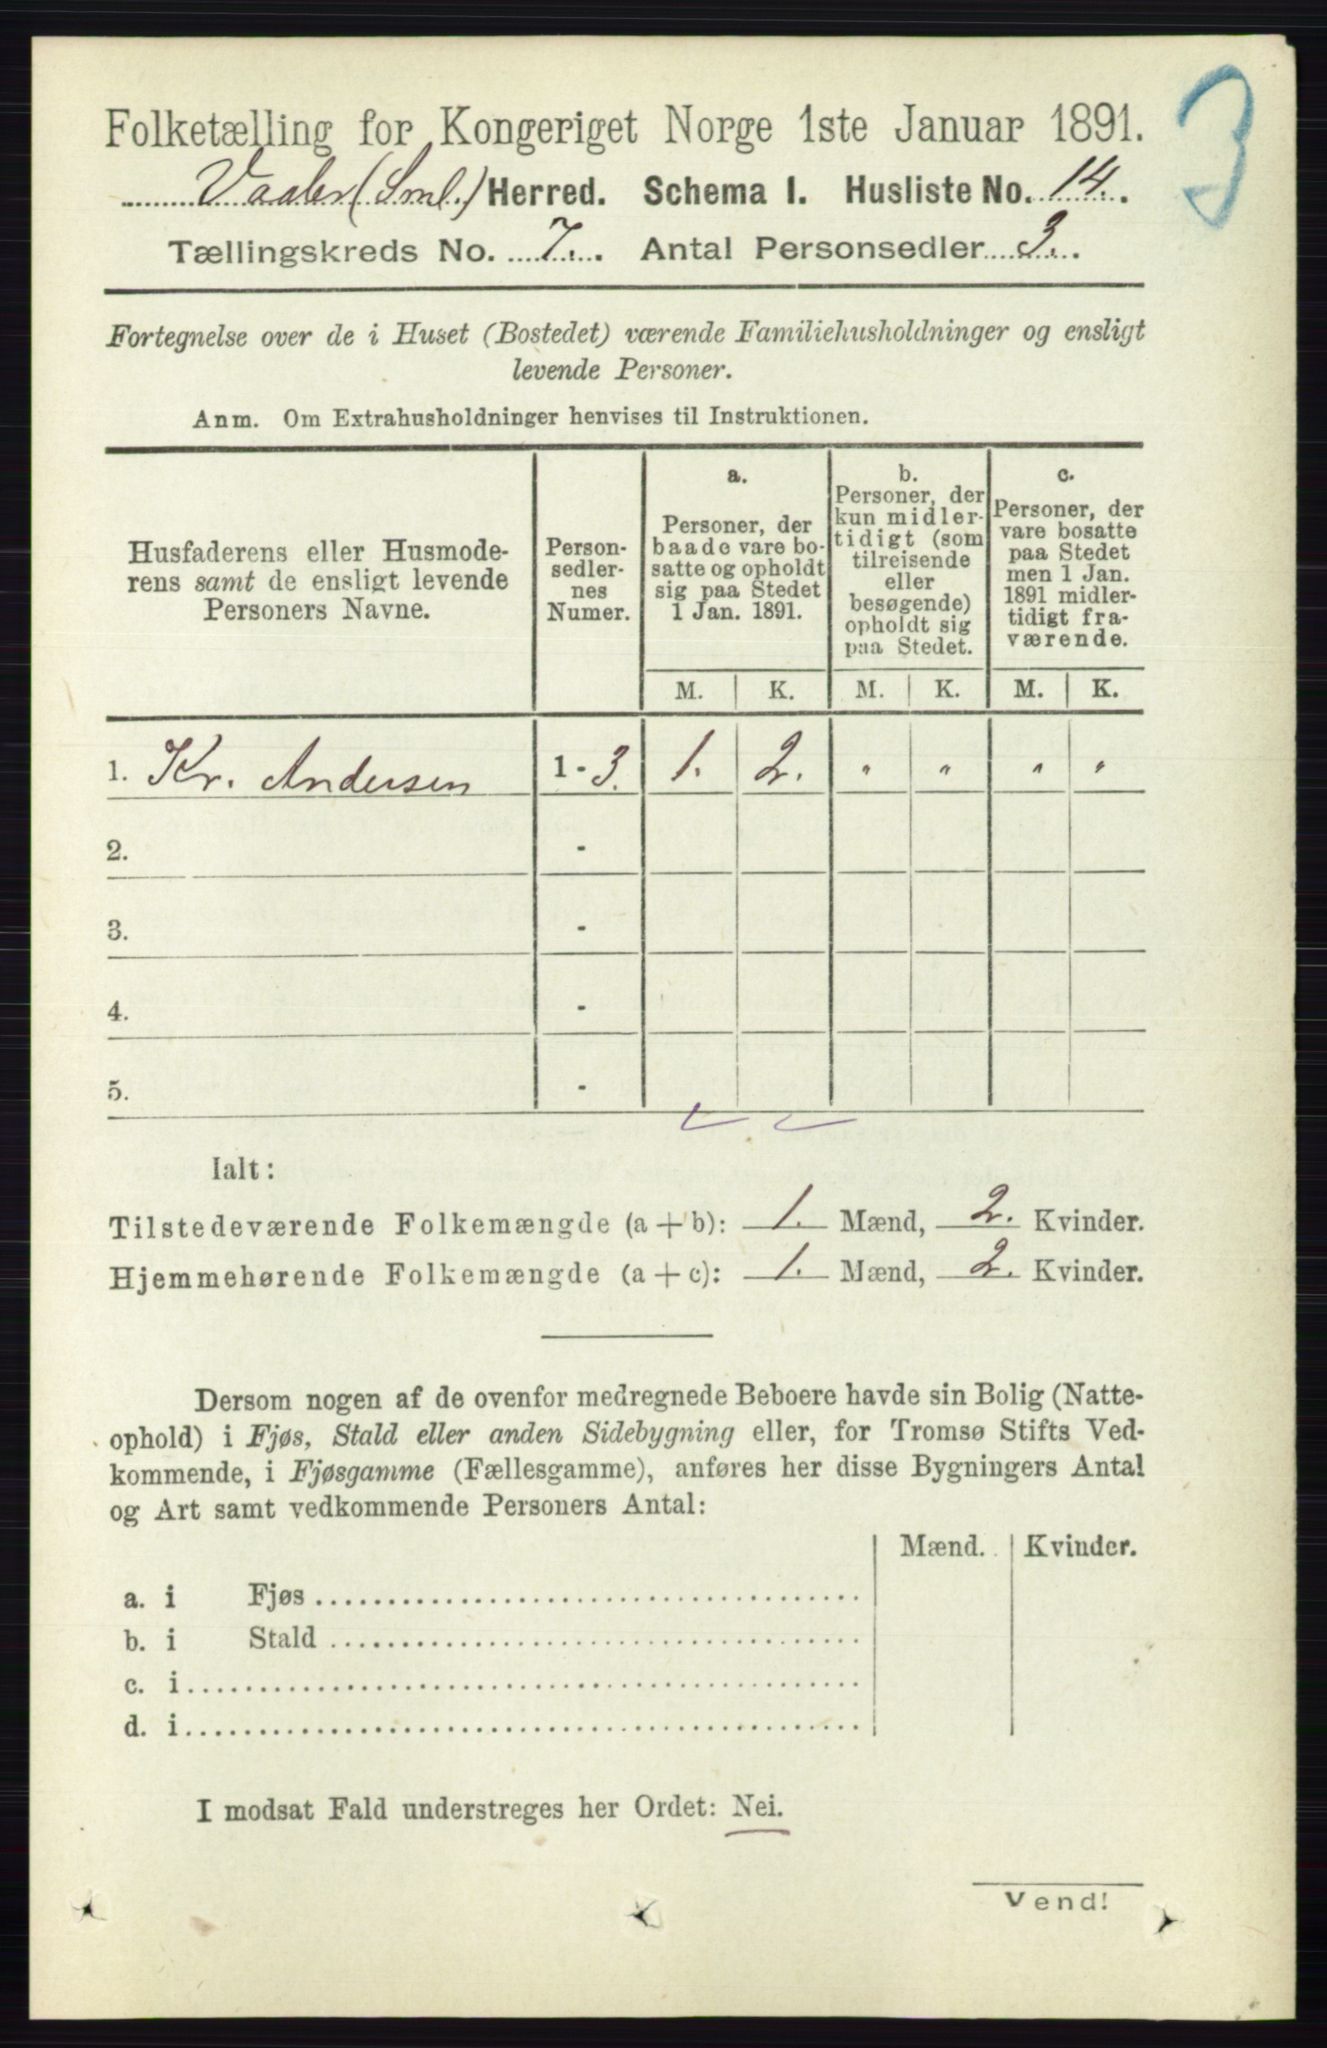 3
Folketælling for Kongeriget Norge 1ste Januar 1891.
Vaaler (Sml.) Herred. Schema I. Husliste No. 14.
Tællingskreds No. 7. Antal Personsedler 3.
Fortegnelse over de i Huset (Bostedet) værende Familiehusholdninger og ensligt
levende Personer.
Anm. Om Extrahusholdninger henvises til Instruktionen.
Husfaderens eller Husmode-
rens samt de ensligt levende
Personers Navne.
Person-
sedler-
nes
Numer.
a.
Personer, der
baade vare bo-
satte og opholdt
sig paa Stedet
1 Jan. 1891.
b.
Personer, der
kun midler-
tidigt (som
tilreisende
eller
besøgende)
opholdt sig
paa Stedet.
c.
Personer, der
vare bosatte
paa Stedet
men 1 Jan.
1891 midler-
tidigt fra-
værende.
M. K. M. K. M. K.
1. Kr. Andersen 1 - 3. 1. 2. " " " "
2. -
3. -
4. -
5. -
Ialt:
Tilstedeværende Folkemængde (a + b): 1. Mænd, 2. Kvinder.
Hjemmehørende Folkemængde (a + c): 1. Mænd, 2. Kvinder.
Dersom nogen af de ovenfor medregnede Beboere havde sin Bolig (Natte-
ophold) i Fjøs, Stald eller anden Sidebygning eller, for Tromsø Stifts Ved-
kommende, i Fjøsgamme (Fællesgamme), anføres her disse Bygningers Antal
og Art samt vedkommende Personers Antal:
Mænd. Kvinder.
a. i Fjøs
b. i Stald
c. i
d. i
I modsat Fald understreges her Ordet: Nei.
Vend!